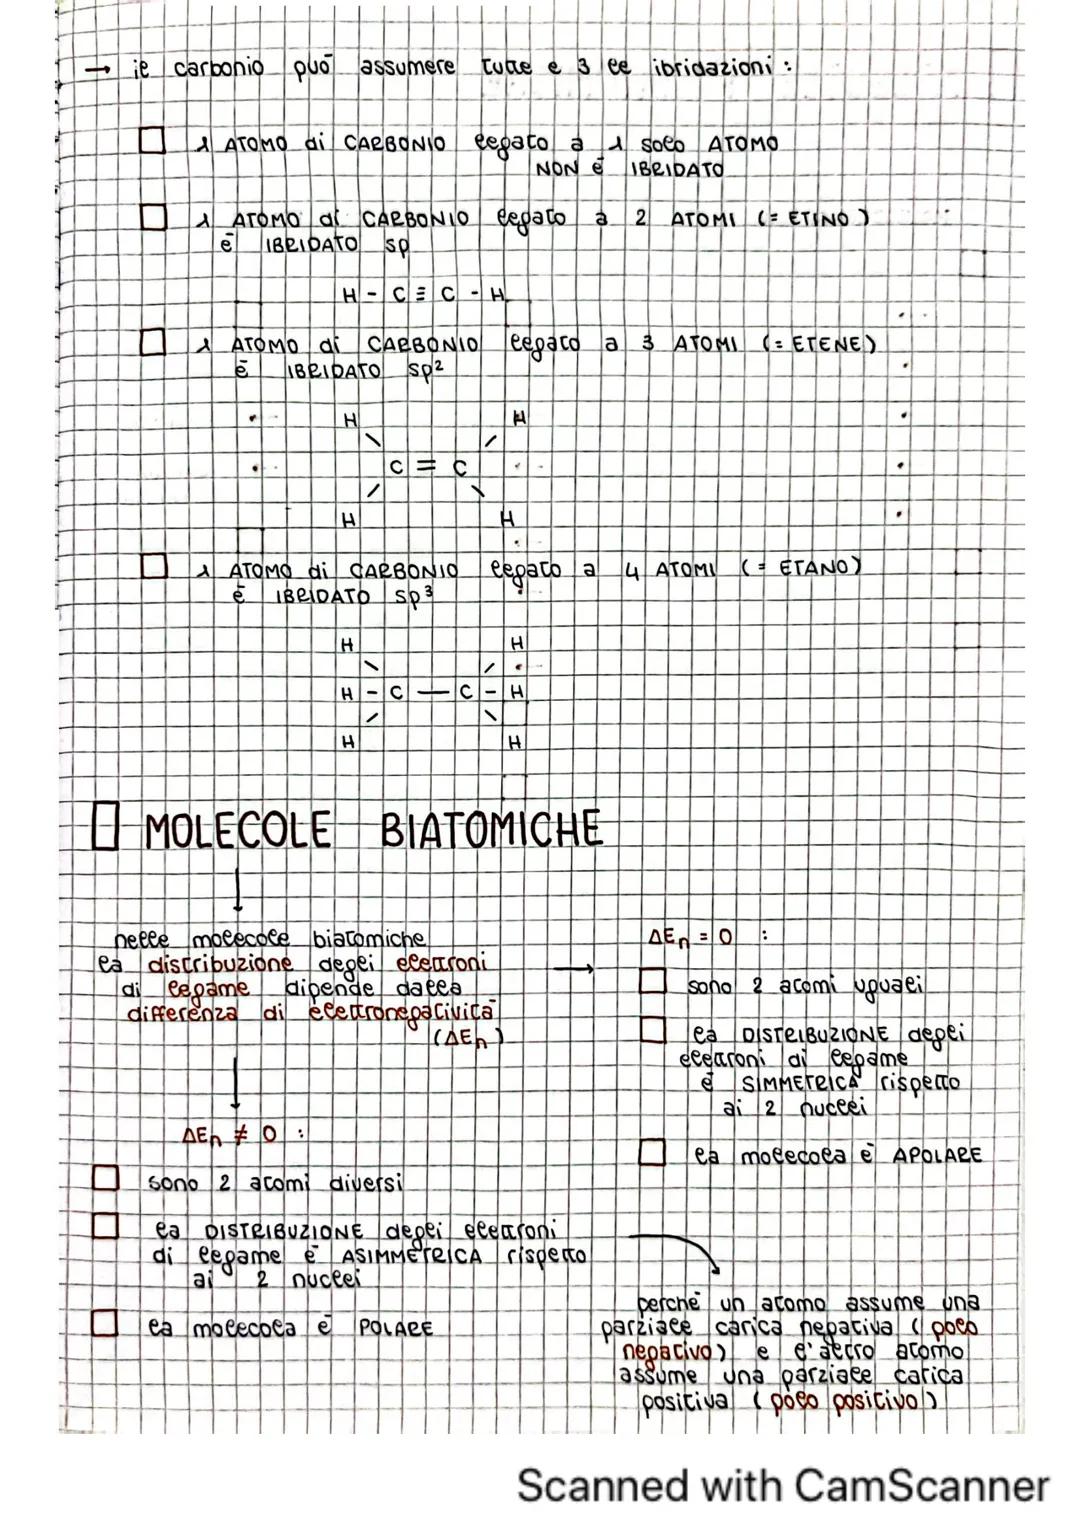 → il carbonio può assumere tutte e 3 le ibridazioni :
1 ATOMO di CARBONIO legato a 1 solo ATOMO
NON è IBRIDATO
1 ATOMO di CARBONIO legato a 2 ATOMI (= ETINO)
è IBRIDATO sp
H - C ≡ C - H
1 ATOMO di CARBONIO legato a 3 ATOMI (= ETENE)
è IBRIDATO sp²
H H
C = C
H H
1 ATOMO di CARBONIO legato a 4 ATOMI (= ETANO)
è IBRIDATO sp³
H H
H - C — C - H
H H
MOLECOLE BIATOMICHE
nelle molecole biatomiche
la distribuzione degli elettroni
di legame dipende dalla
differenza di elettronegatività
(ΔEn)
→
ΔEn = 0 :
sono 2 atomi uguali
la DISTRIBUZIONE degli
elettroni di legame
è SIMMETRICA rispetto
ai 2 nuclei
la molecola è APOLARE
ΔEn ≠ 0 :
sono 2 atomi diversi
la DISTRIBUZIONE degli elettroni
di legame è ASIMMETRICA rispetto
ai 2 nuclei
la molecola è POLARE
perché un atomo assume una
parziale carica negativa (polo
negativo) e l'altro atomo
assume una parziale carica
positiva (polo positivo)
Scanned with CamScanner